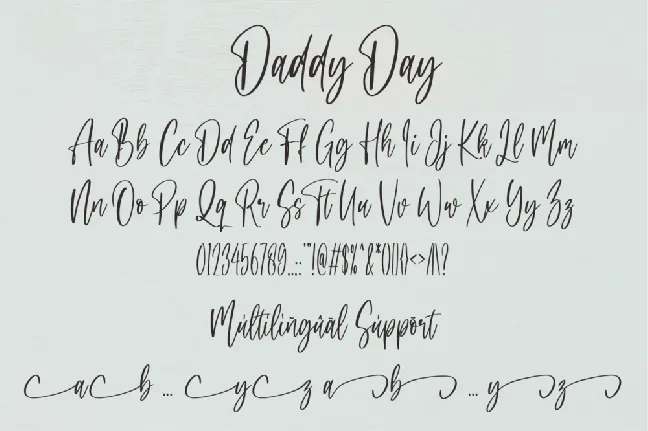 Daddy Day
Aa Bb Cc Dd Ee Ff Gg Hh Ii Jj Kk Ll Mm
Nn Oo Pp Qq Rr Ss Tt Uu Vv Ww Xx Yy Zz
0123456789.,:;'"!@#$%^&*()[]{}<>/|\?
Múltilïngûãl Súppõrt
a b ... y z a b ... y z